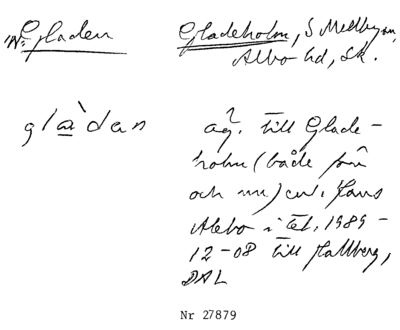 Gladen
Gladeholm, S Mellby sn,
Albo hd, Sk.
glàdan
äg. till Glade-
holm (både förr
och nu) enl. Hans
Alebo i tel. 1989-
12-08 till Hallberg,
DAL
Nr 27879